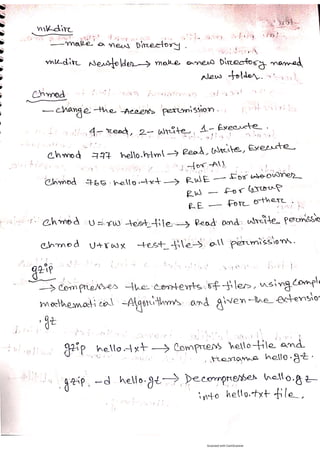 mkdir
— make a new Directory.
mkdir Newfolder → make a new Directory named
New folder.
Chmod
— change the Access permission.
4 - Read, 2 - Write, 1 - Execute
Chmod 777 hello.html → Read, Write, Execute
for All
Chmod 765 hello.txt → RWE — For owner
RW — For Group
RE — For other.
Chmod u=rw test_file → Read and write permissio
chmod u+rwx test_file → all permissions.
gzip
→ Compresses the contents of files, using compl
mathematical Algorithms and given the extensio
.gz
gzip hello.txt → Compress hello file and
rename hello.gz.
gzip -d hello.gz → Decompresses hello.gz
into hello.txt file.
Scanned with CamScanner